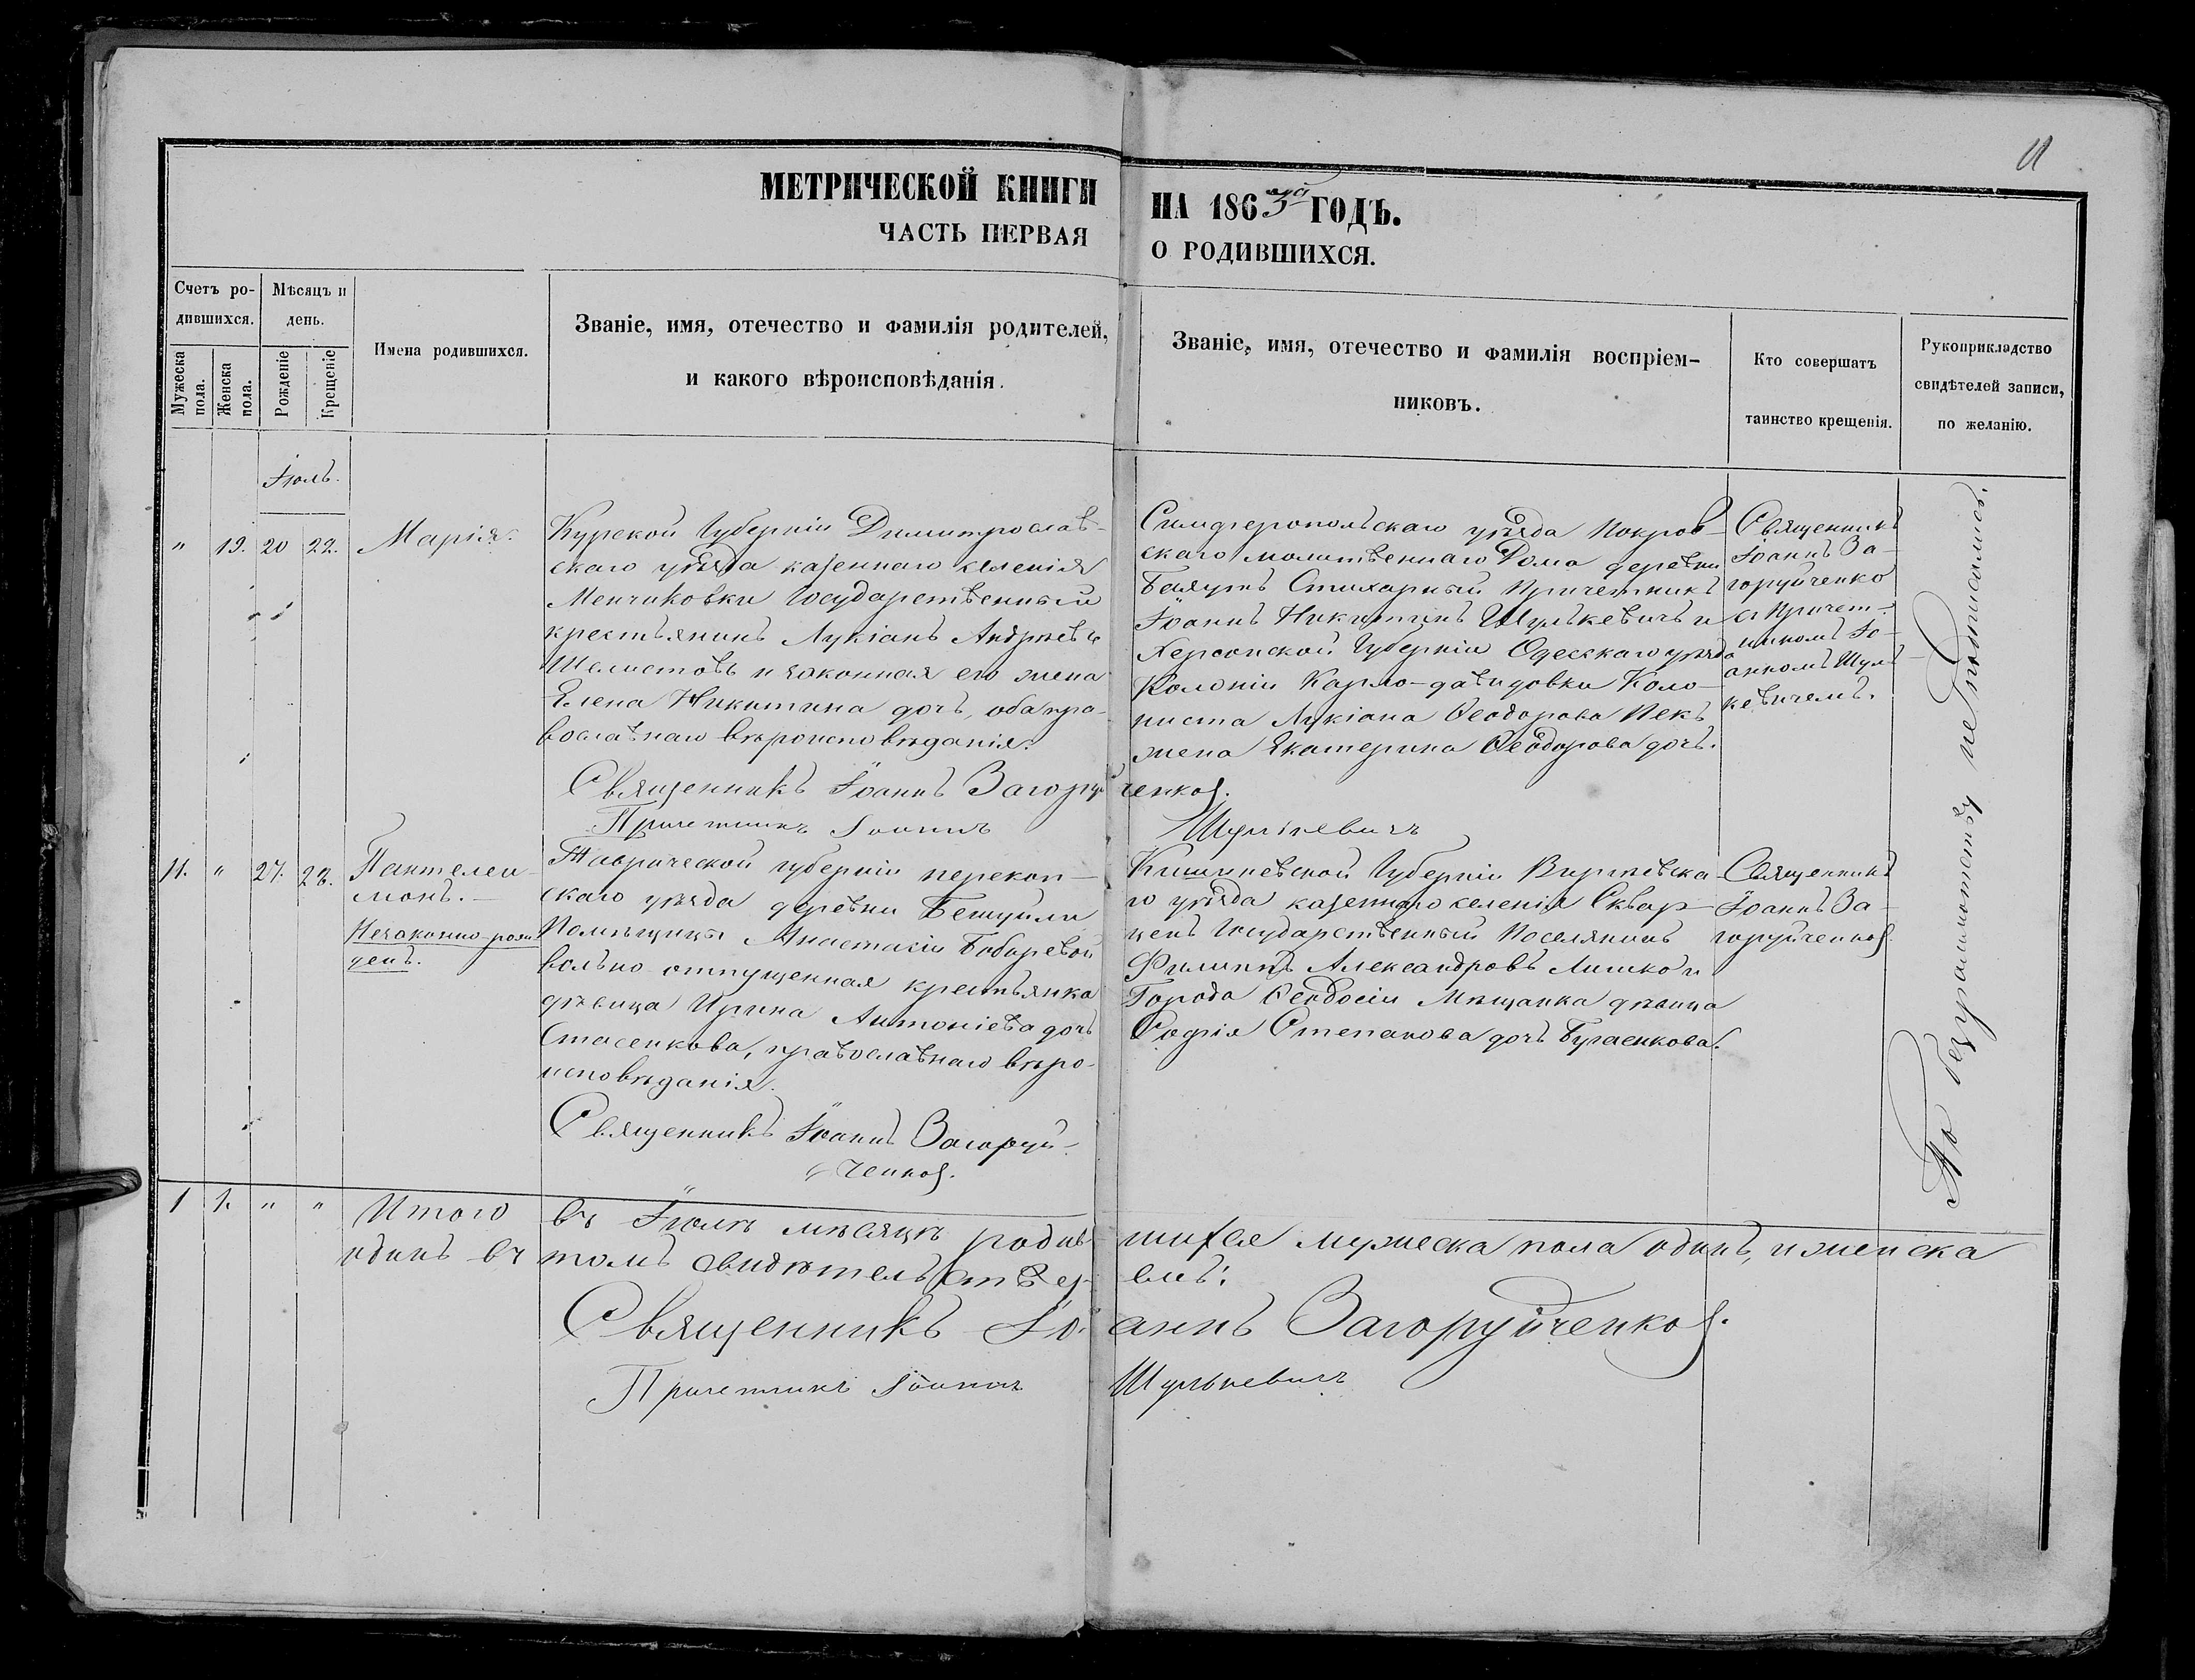 11
МЕТРИЧЕСКОЙ КНИГИ НА 1863й ГОДЪ.
ЧАСТЬ ПЕРВАЯ О РОДИВШИХСЯ.
Счетъ ро-
дившихся.
Мужеска пола.
Женска пола.
Мѣсяцъ и
день.
Рожденіе
Крещеніе
Имена родившихся.
Званіе, имя, отечество и фамилія родителей,
и какого вѣроисповѣданія.
Званіе, имя, отечество и фамилія воспріем-
никовъ.
Кто совершатъ
таинство крещенія.
Рукоприкладство
свидѣтелей записи,
по желанію.
Іюль.
" 19. 20 22. Марія.
Курской Губерніи Димитрослав-
скаго уѣзда казеннаго селенія
Менчиковки Государственный
крестьянинъ Лукіанъ Андреевъ
Шелистовъ и законная его жена
Елена Никитина дочь, оба пра-
вославнаго вѣроисповѣданія.
Симферопольскаго уѣзда Покров-
скаго молитвеннаго Дома деревни
Баяутъ Стихарный Причетникъ
Іоаннъ Никитинъ Шулькевичъ и
Херсонской Губерніи Одесскаго уѣзда
Колоніи Карло-давидовки Коло-
ниста Лукіана Ѳеодорова Пекъ
жена Екатерина Ѳеодорова дочь.
Священникъ
Іоаннъ За-
горуйченко
съ Причет-
никомъ Іо-
анномъ Шуль
кевичемъ.
Священникъ Іоаннъ Загоруйченко.
Причетникъ Іоаннъ Шулькевичъ
11. " 27. 28. Пантелеи-
монъ.
Незаконно рож-
денъ.
Таврической губерніи перекоп-
скаго уѣзда деревни Бешуйли
Помѣщицы Анастасіи Бобыревой
вольно отпущенная крестьянка
дѣвица Ирина Антоніева дочь
Стасенкова, православнаго вѣро-
исповѣданія.
Кишиневской Губерніи
го уѣзда казеннаго селенія Сквар-
ценъ Государственный Поселянинъ
Филиппъ Александровъ Лишко и
Города Ѳеодосіи Мѣщанка дѣвица
Софія Степанова дочь Бугаенкова.
Священникъ
Іоаннъ За-
горуйченко.
Священникъ Іоаннъ Загоруй-
ченко.
По безграмотству не подписались.
1 1. " " Итого въ Іюлѣ мѣсяцѣ родившихся мужеска пола одинъ, и женска
одинъ въ томъ свидѣтельствуемъ:
Священникъ Іоаннъ Загоруйченко.
Причетникъ Іоаннъ Шулькевичъ